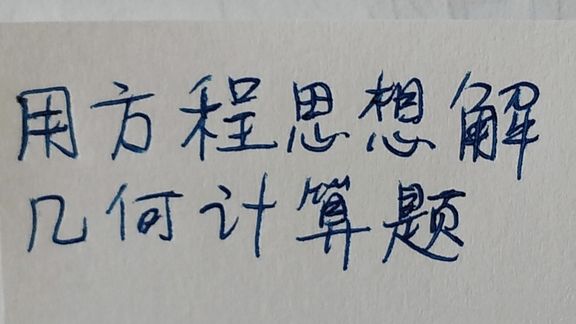 用方程思想解
几何计算题